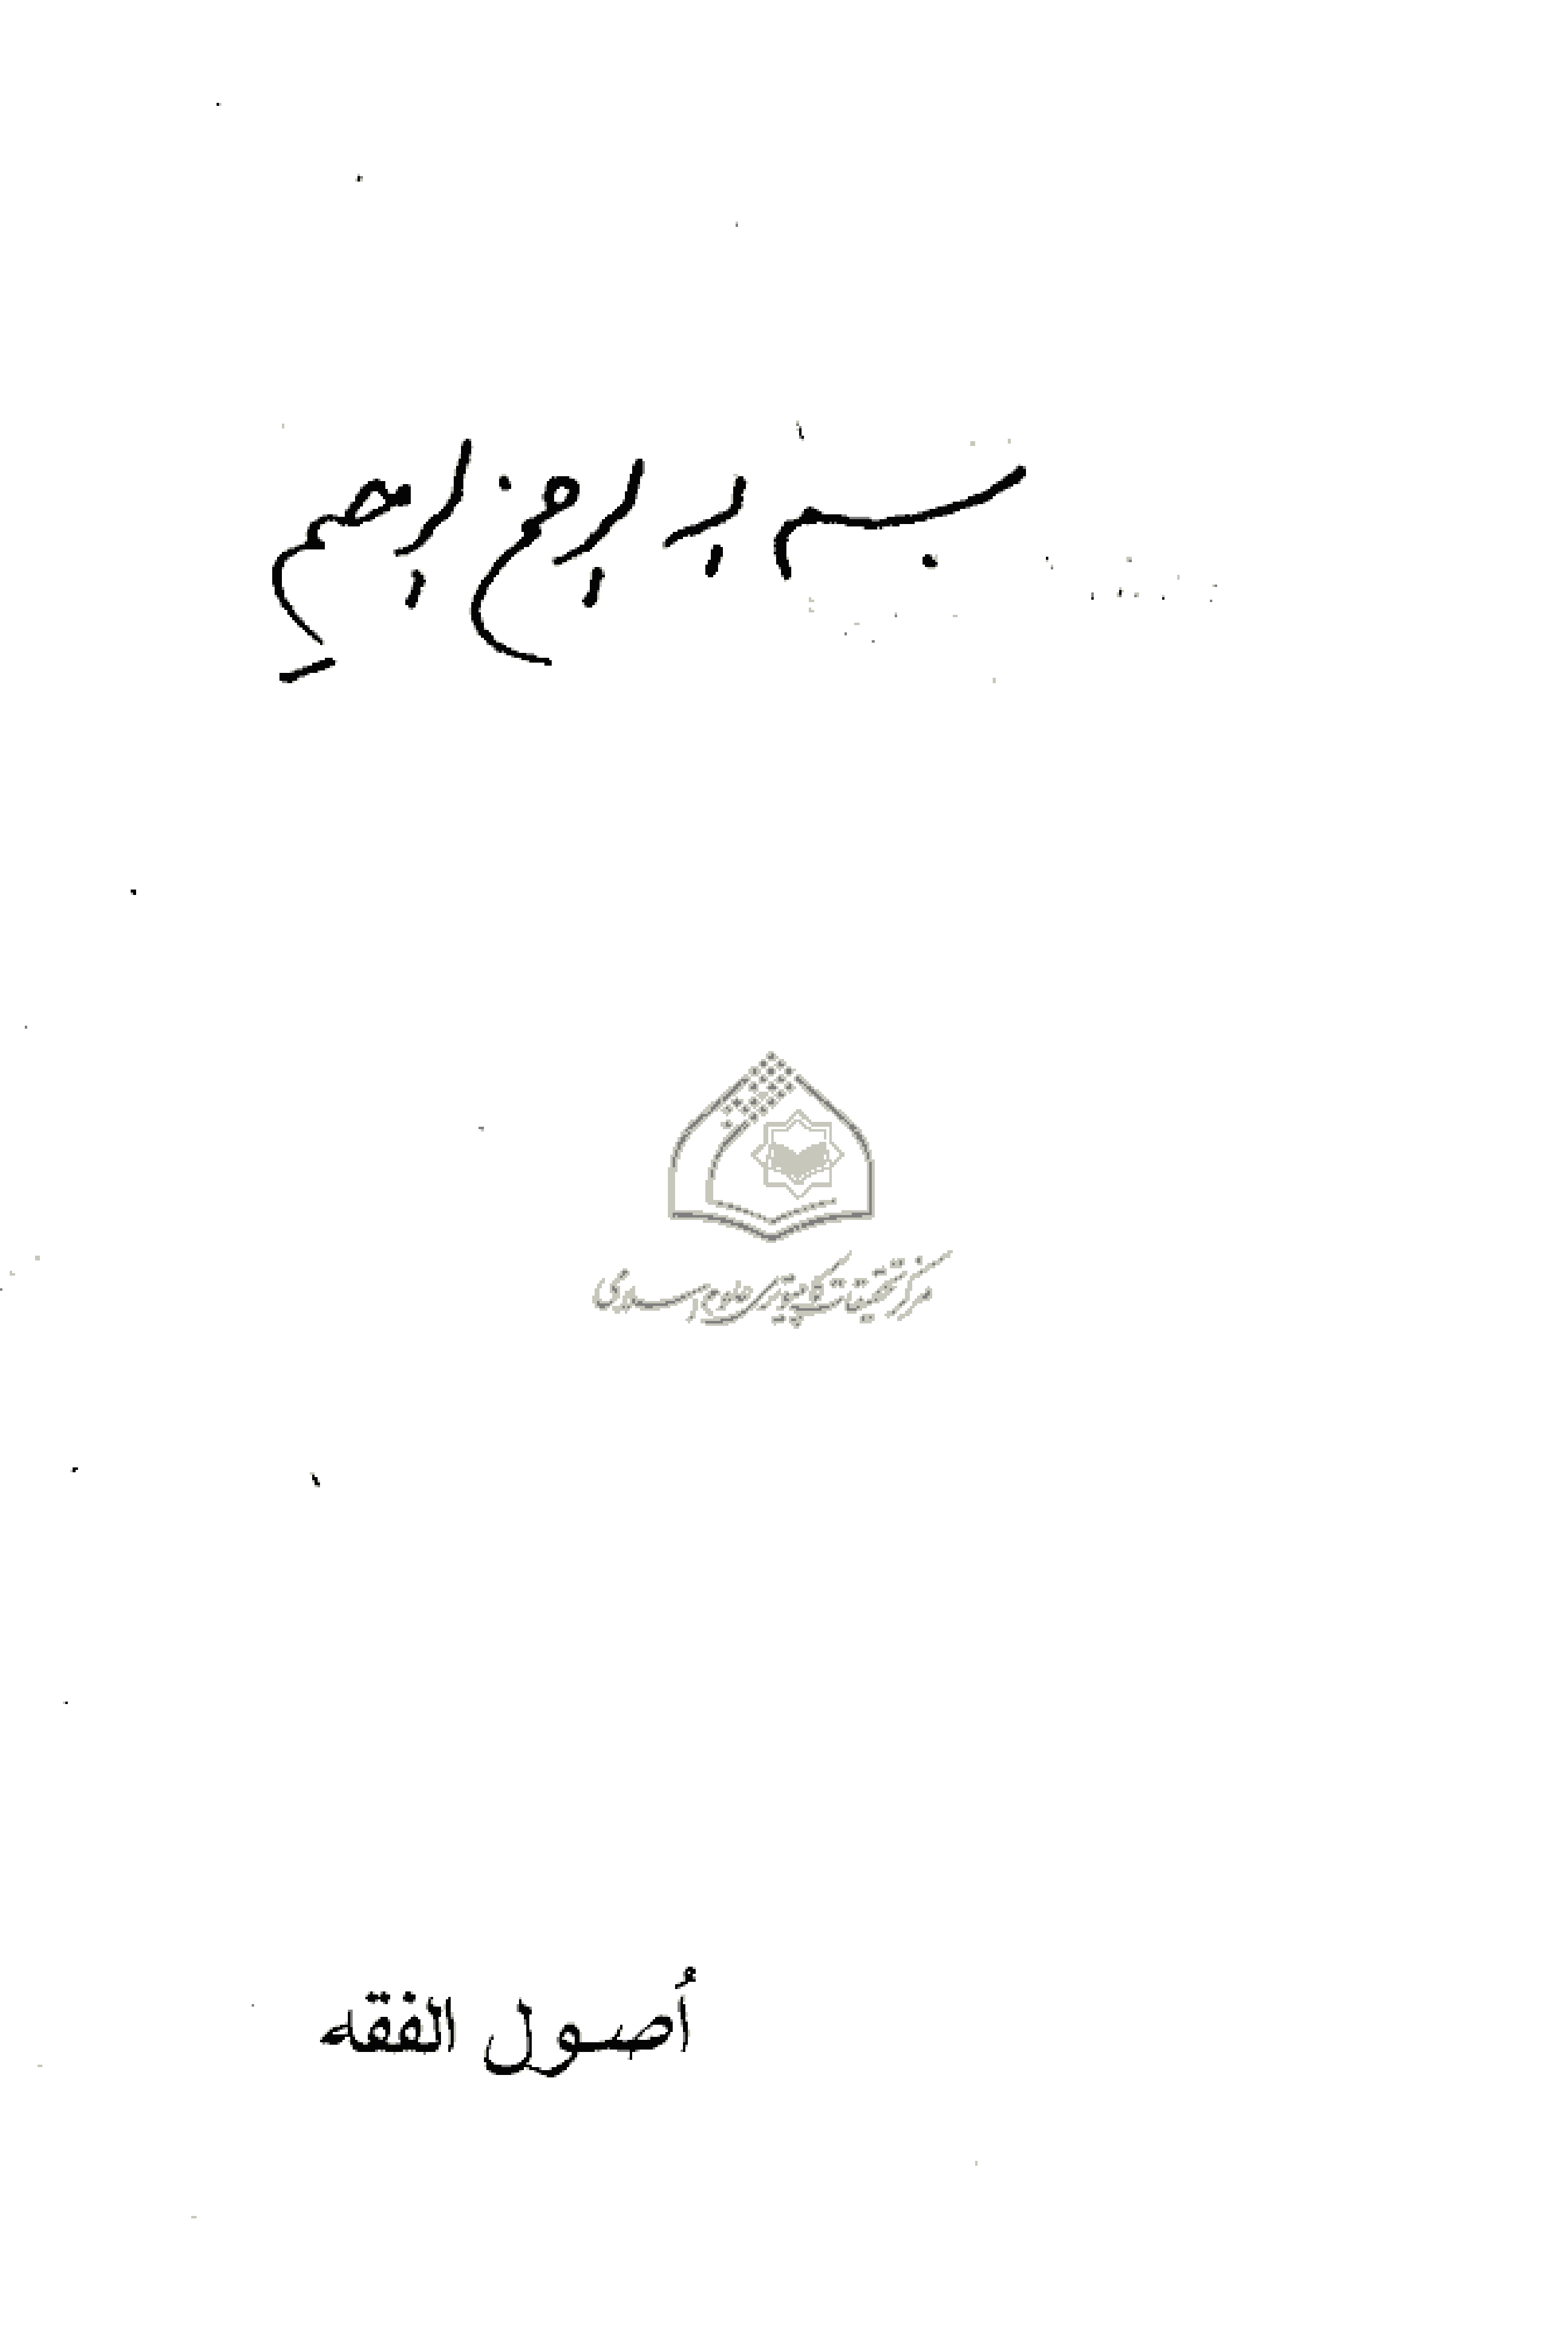 بسم الله الرحمن الرحيم
مرکز تحقیقات کامپیوتری علوم اسلامی
أُصول الفقه